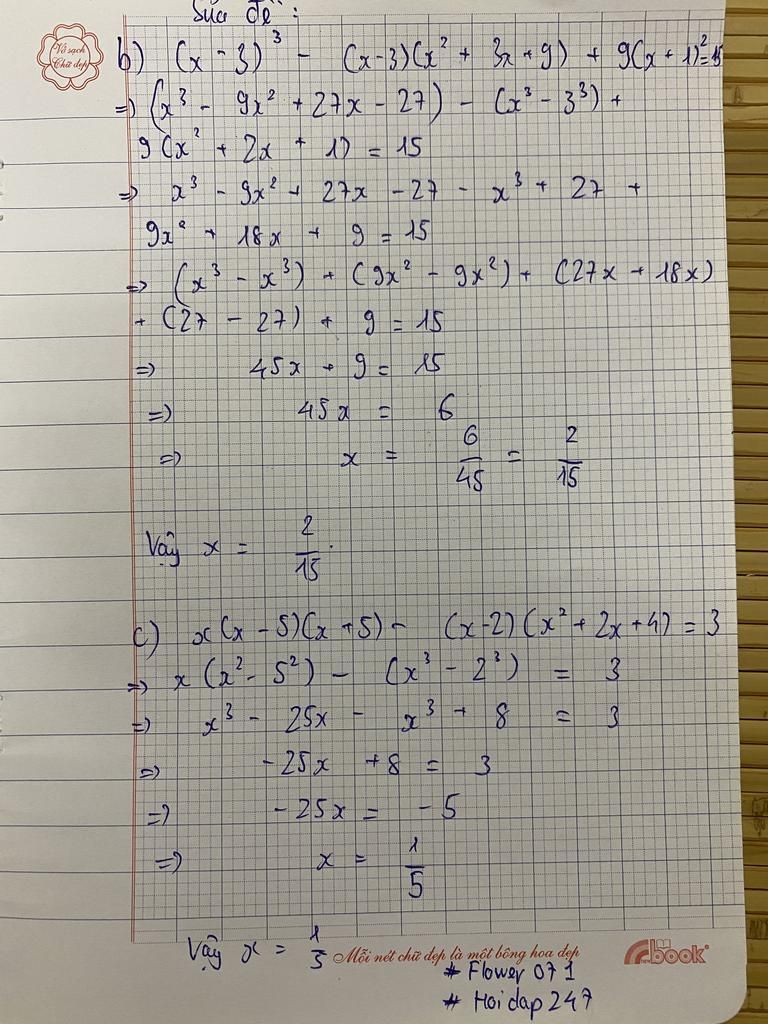 Sửa đề :
Vở sạch
Chữ đẹp
b) (x - 3)³ - (x-3)(x² + 3x + 9) + 9(x + 1)² = 15
=> (x³ - 9x² + 27x - 27) - (x³ - 3³) +
9(x² + 2x + 1) = 15
=> x³ - 9x² + 27x - 27 - x³ + 27 +
9x² + 18x + 9 = 15
=> (x³ - x³) + (9x² - 9x²) + (27x + 18x)
+ (27 - 27) + 9 = 15
=> 45x + 9 = 15
=> 45x = 6
=> x = 6/45 = 2/15
Vậy x = 2/15.
c) x(x - 5)(x + 5) - (x-2)(x² + 2x + 4) = 3
=> x(x² - 5²) - (x³ - 2³) = 3
=> x³ - 25x - x³ + 8 = 3
=> -25x + 8 = 3
=> -25x = -5
=> x = 1/5
Vậy x = 1/5
Mỗi nét chữ đẹp là một bông hoa đẹp
book
# Flower 071
# Hoidap247